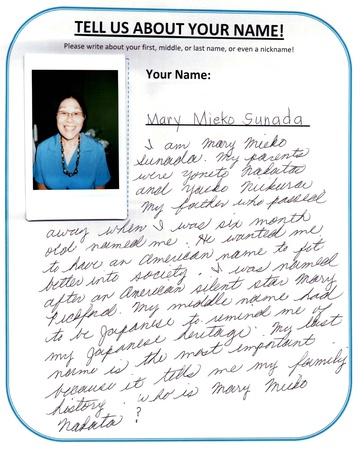 TELL US ABOUT YOUR NAME!
Please write about your first, middle, or last name, or even a nickname!
Your Name:
Mary Mieko Sunada
I am Mary Mieko
Sunada. My parents
were Yoneto Nakata
and Yaeko Nukurai
My father who passed
away when I was six month
old named me. He wanted me
to have an American name to fit
better into society. I was named
after an American silent star Mary
Pickford. My middle name had
to be Japanese to remind me of
my Japanese heritage. My last
name is the most important
because it tells me my family
history. Who is Mary Mieko
Nakata?